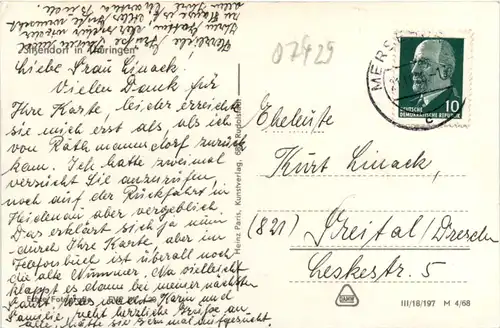 Ziegendorf in Thüringen
Liebe Frau Linack.
Vielen Dank für
Ihre Karte, leider erreichte
sie mich erst als, als ich
von Rathmannsdorf zurück
kam. Ich hatte zweimal
versucht Sie anzurufen,
noch auf der Rückfahrt in
Heidenau aber vergeblich
Das erklärt sich ja nun
durch Ihre Karte, aber im
Telefonbuch ist überall noch
die alte Nummer. Na vielleicht
klappt es dann bei meiner nächsten
Fahrt. Was macht Karin und
Familie, recht herzliche Grüße an
alle, hätte sie gern mal aufgesucht.
Heinz Paris, Kunstverlag,
07429
MERS
DEUTSCHE
DEMOKRATISCHE REPUBLIK
10
Eheleute
Kurt Linack,
(821) Freital/Dresden
Leskestr. 5
III/18/197 M 4/68